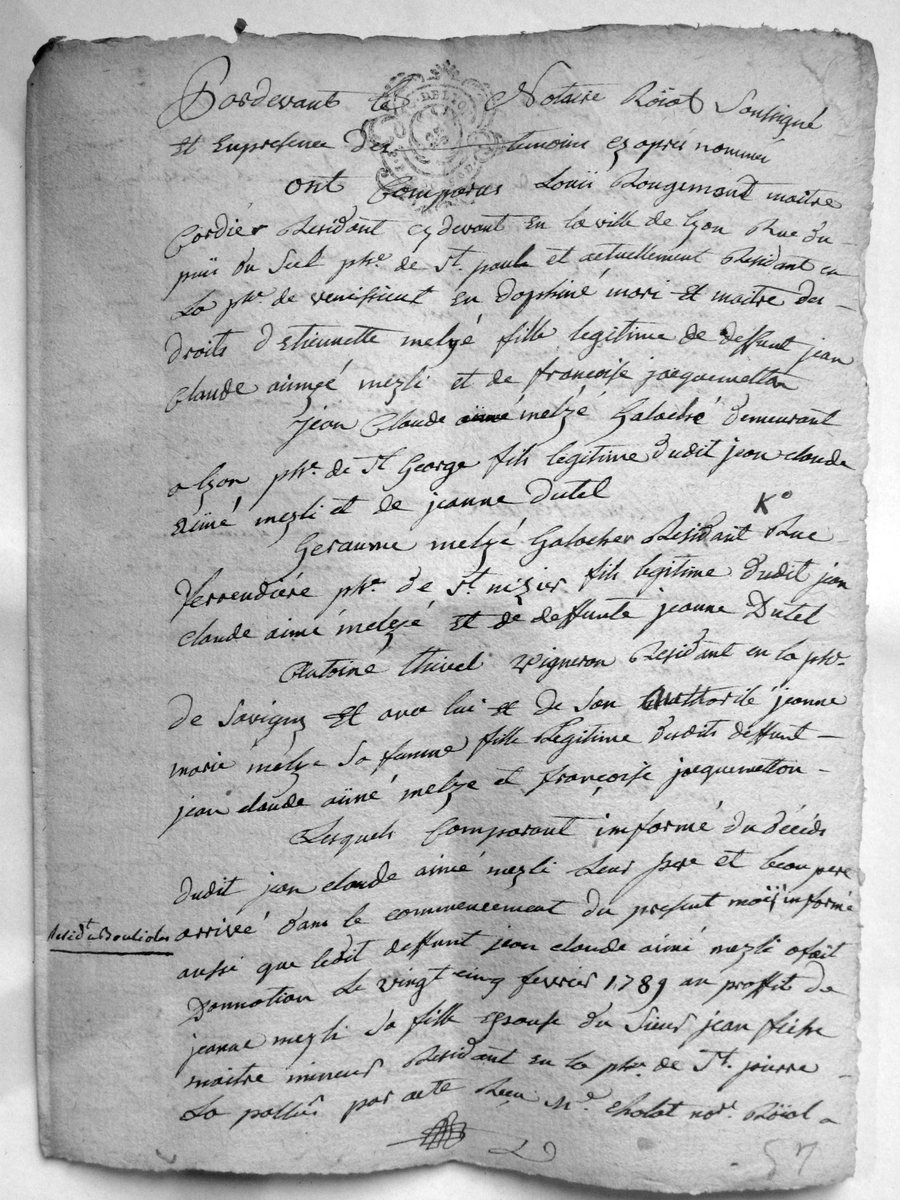 Pardevant le Notaire Roïal Soussigné
et Enpresence des temoins cy aprés nommé
ont Comparus Louïs Rougemont maitre
Cordier Residant cydevant en la ville de lyon Rue du
puis du Sel phe. de St. paule et actuellement Residant en
La phe. de venissieux en dophiné mari et maitre des
droits d'Etiennette melzé fille legitime de deffunt jean
Claude aimeé mezli et de francoise jacquemetton
jean Claude aimé melzé Galoché demeurant
a lyon phe. de St George fils legitime dudit jean claude
aimé mezli et de jeanne Dutel
K°
Geraume melzé Galocher Residant Rue
ferrendiére phe. de St. nizier fils legitime dudit jean
claude aimé melzé et de deffunte jeanne Dutel
Antoine thivel vigneron Residant en la phe.
de Savigny et avec lui et de Son authorité jeanne
marie melze Sa femme fille Legitime desdits deffunt
jean claude aimé melze et françoise jacquemetton
Lesquels Comparant imformé du décéds
dudit jean claude aimé mezli Leur pere et beau pere
arrivée dans le commencement du present mois informé
aussi que ledit deffunt jean claude aimé mezli a fait
Donnation Le vingt cinq fevrier 1789 au proffit de
jeanne mezli Sa fille Epouse du Sieur jean
maitre mineur Residant en la phe. de St. pierre
La pallud par acte Reçu Me. cholat nore. Roïal
57